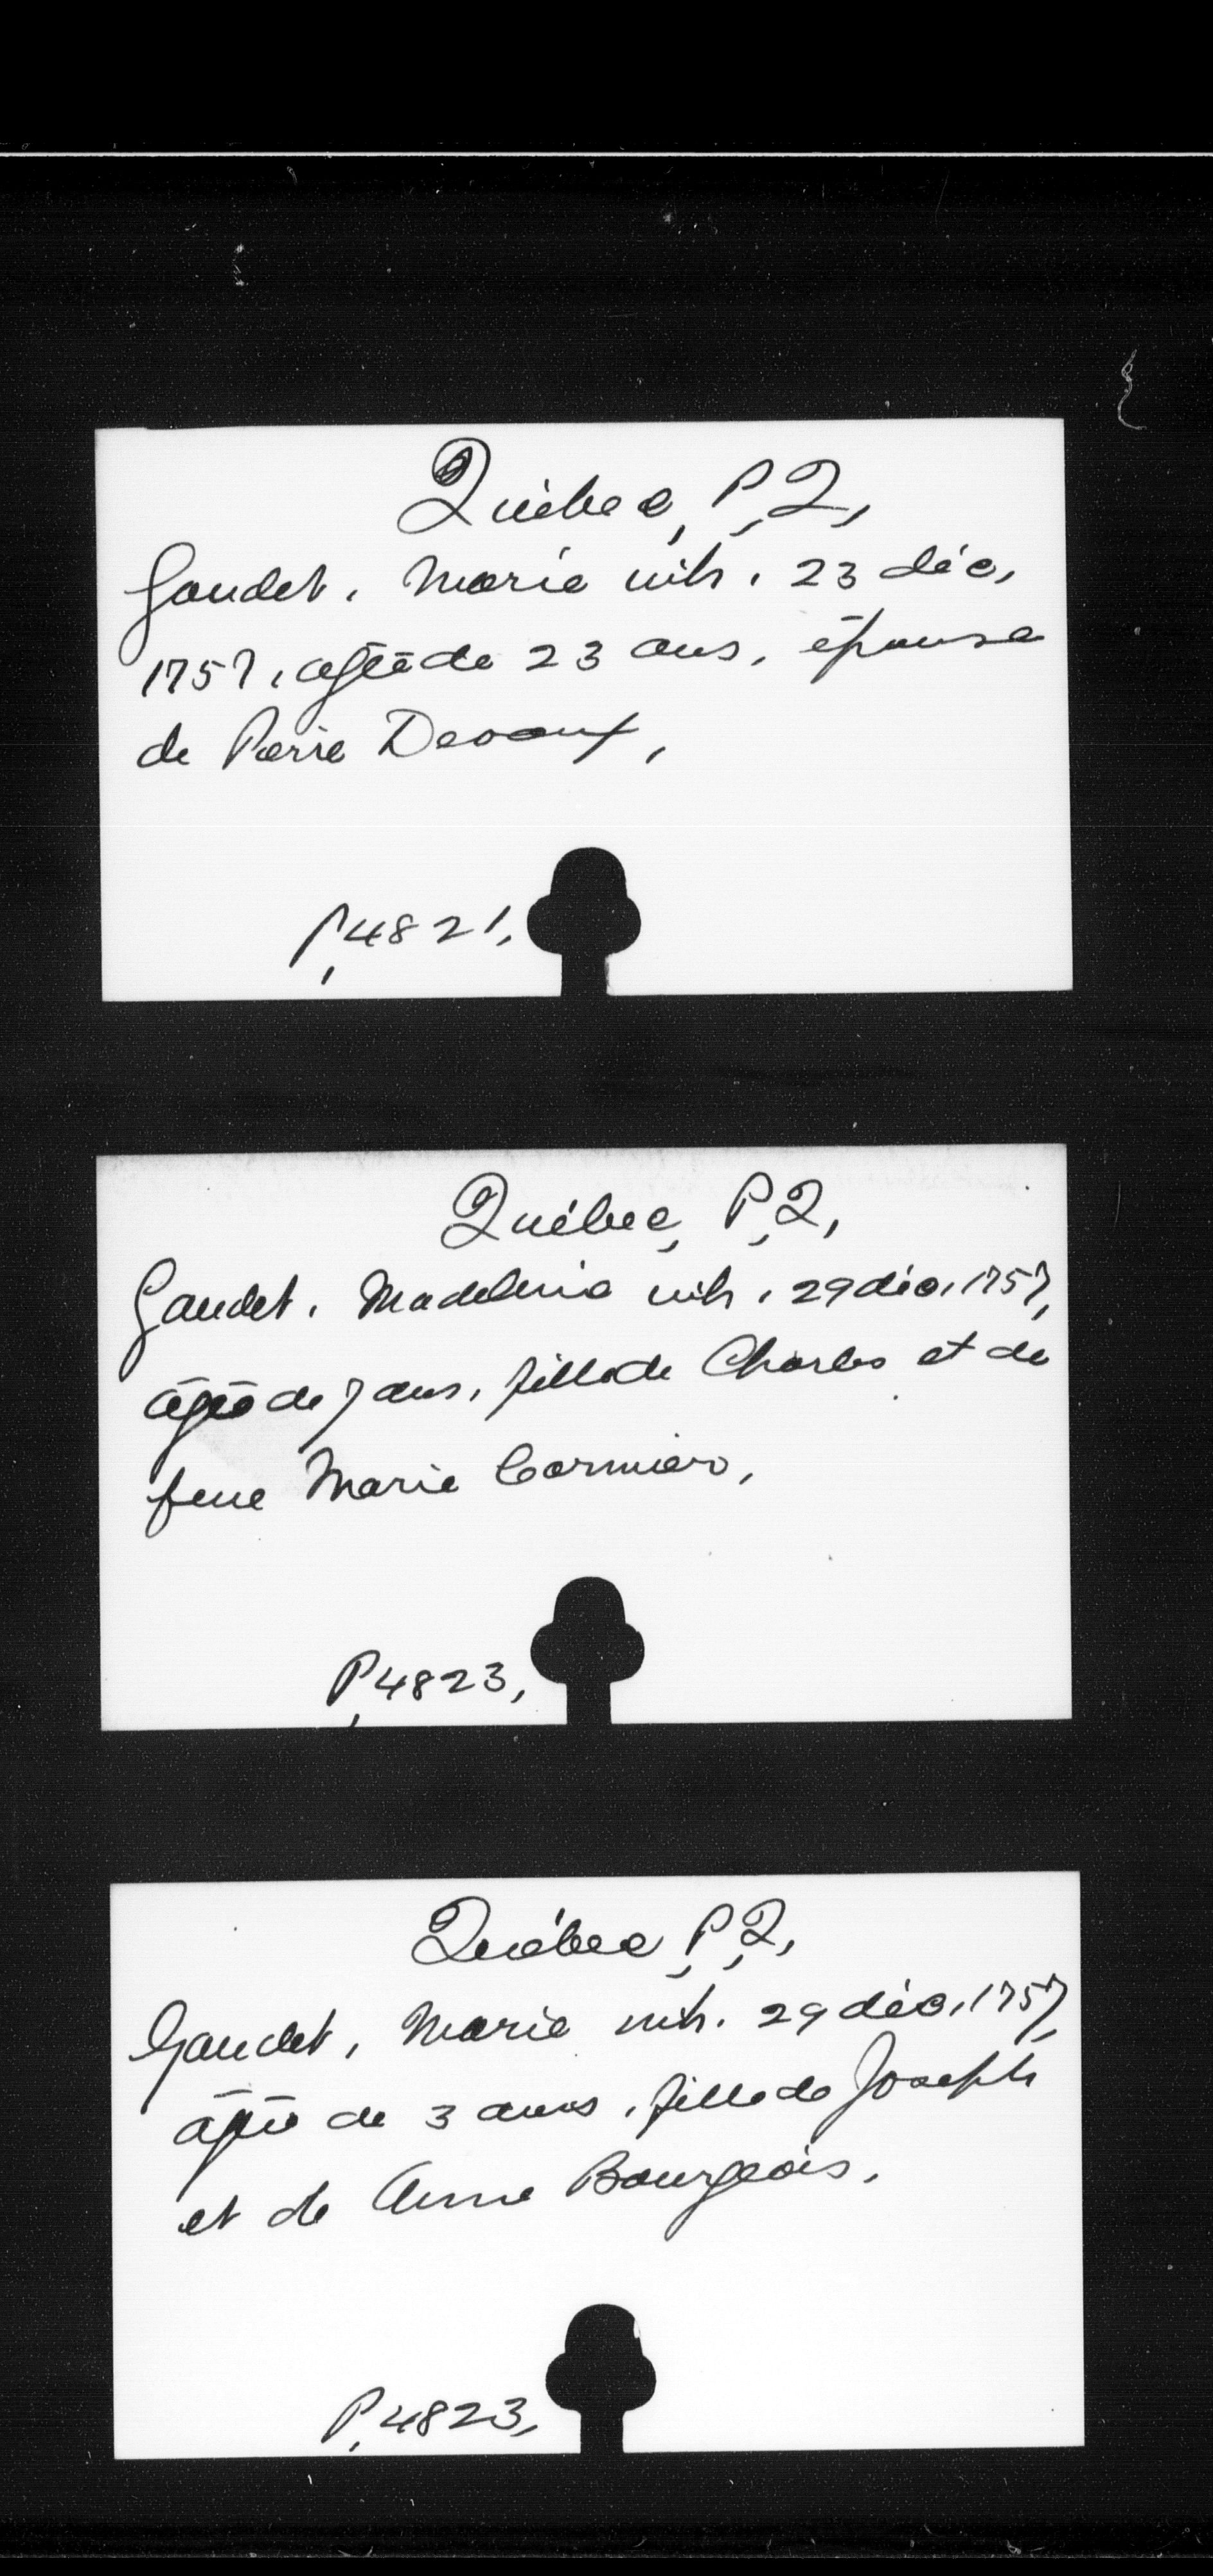 Québec, P,Q,
Gaudet, Marie inh. 23 déc,
1757, agée de 23 ans, épouse
de Pierre Devaux,
P,4821,
Québec, P,Q,
Gaudet, Madeleine inh. 29 déc, 1757,
âgée de 7 ans, fille de Charles et de
feue Marie Cormier,
P,4823,
Québec, P,Q,
Gaudet, Marie inh. 29 déc, 1757,
âgée de 3 ans, fille de Joseph
et de Anne Bourgeois,
P,4823,